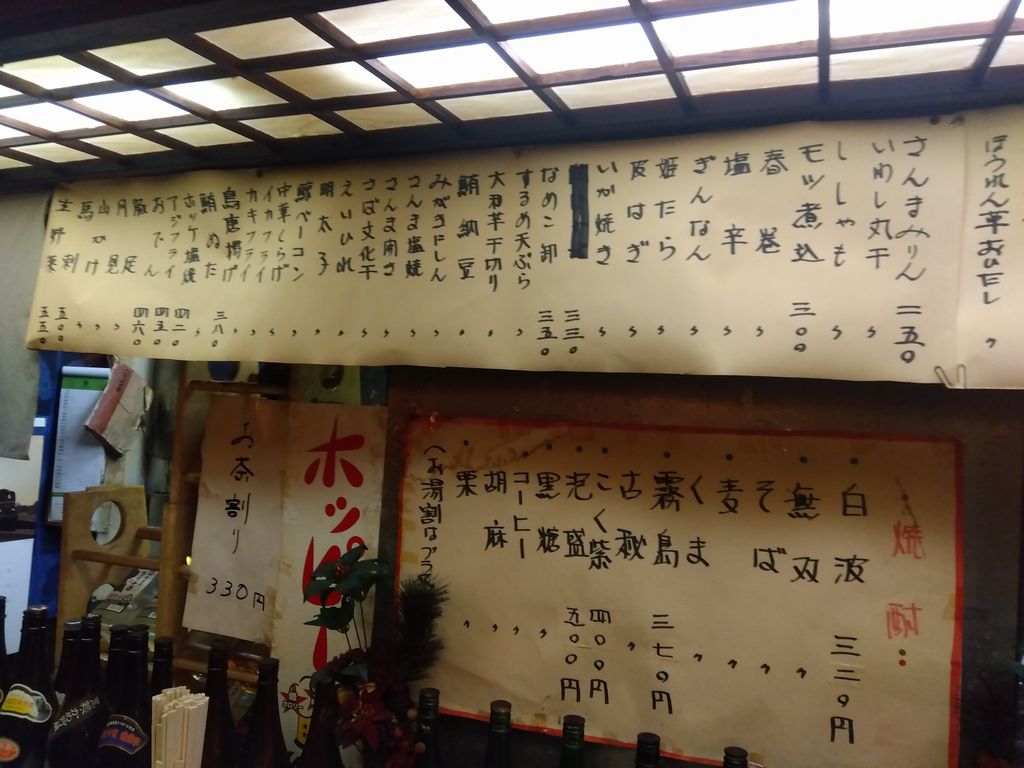 ほうれん草おひたし 〃
さんまみりん 二五〇
いわし丸干 〃
ししゃも 〃
モツ煮込 三〇〇
春巻 〃
塩辛 〃
ぎんなん 〃
姫たら 〃
皮はぎ 〃
いか焼き 〃
三三〇
なめこ卸 三五〇
するめ天ぷら 〃
大和芋千切り 〃
鮪納豆 〃
みがきにしん 〃
さんま塩焼 〃
さんま開き 〃
さば文化干 〃
えいひれ 〃
明太子 〃
鯨ベーコン 〃
中華くらげ 〃
イカフライ 〃
カキフライ 〃
鳥唐揚げ 〃
鮪ぬた 三八〇
ホッケ塩焼 〃
アジフライ 四二〇
おでん 四五〇
四六〇
月見 〃
山かけ 〃
馬刺 五五〇
焼酎
白波 三三〇円
無双 〃
そば 〃
麦 〃
くま 〃
霧島 三七〇円
古秘 〃
こく紫 四〇〇円
老盛 五〇〇円
黒糖 〃
コーヒー 〃
胡麻 〃
栗 〃
(お湯割はプラス
ホッピー
お茶割り 330円